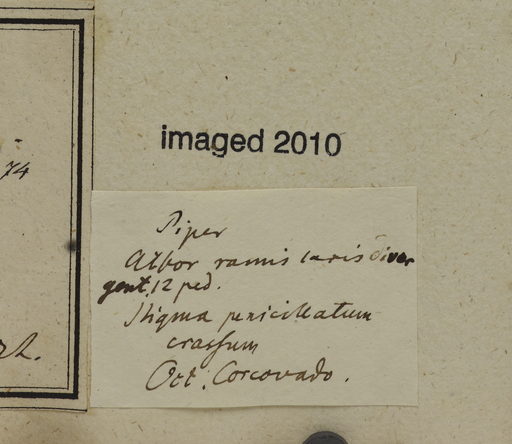 imaged 2010
74
Piper
Arbor ramis laxis diver
gent. 12 ped.
Stigma penicillatum
crassum
Oct. Corcovado.